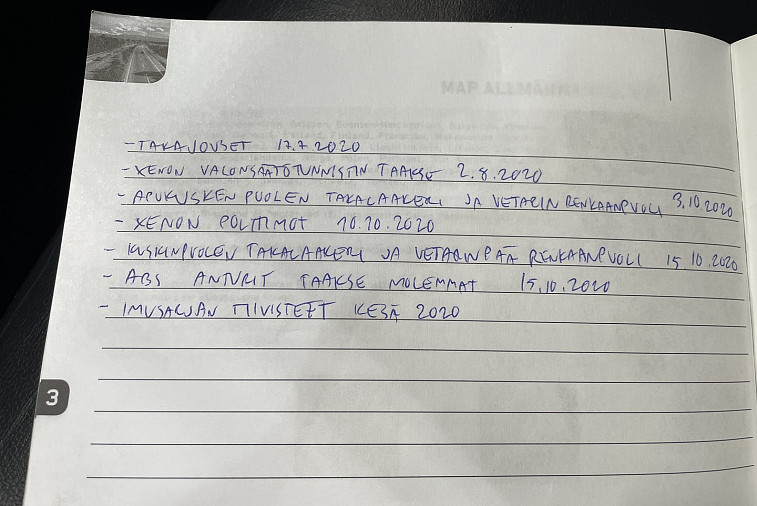 MAP ALLMÄNNA
- TAKAJOUSET 17.7.2020
- XENON VALONSÄÄTÖTUNNISTIN TAAKSE 2.8.2020
- APUKUSKEN PUOLEN TAKALAAKERI JA VETARIN RENKAANPUOLI 3.10.2020
- XENON POLTTIMOT 10.10.2020
- KUSKINPUOLEN TAKALAAKERI JA VETARINPÄÄ RENKAANPUOLI 15.10.2020
- ABS ANTURIT TAAKSE MOLEMMAT 15.10.2020
- IMUSARJAN TIIVISTEET KESÄ 2020
3